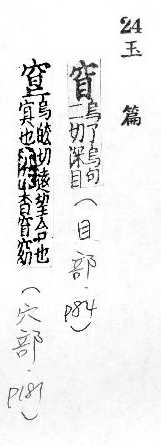 24 玉篇
窅 烏了烏句
二切深目
(目部·P84)
烏皎切遠望合也
冥也
(穴部·P187)